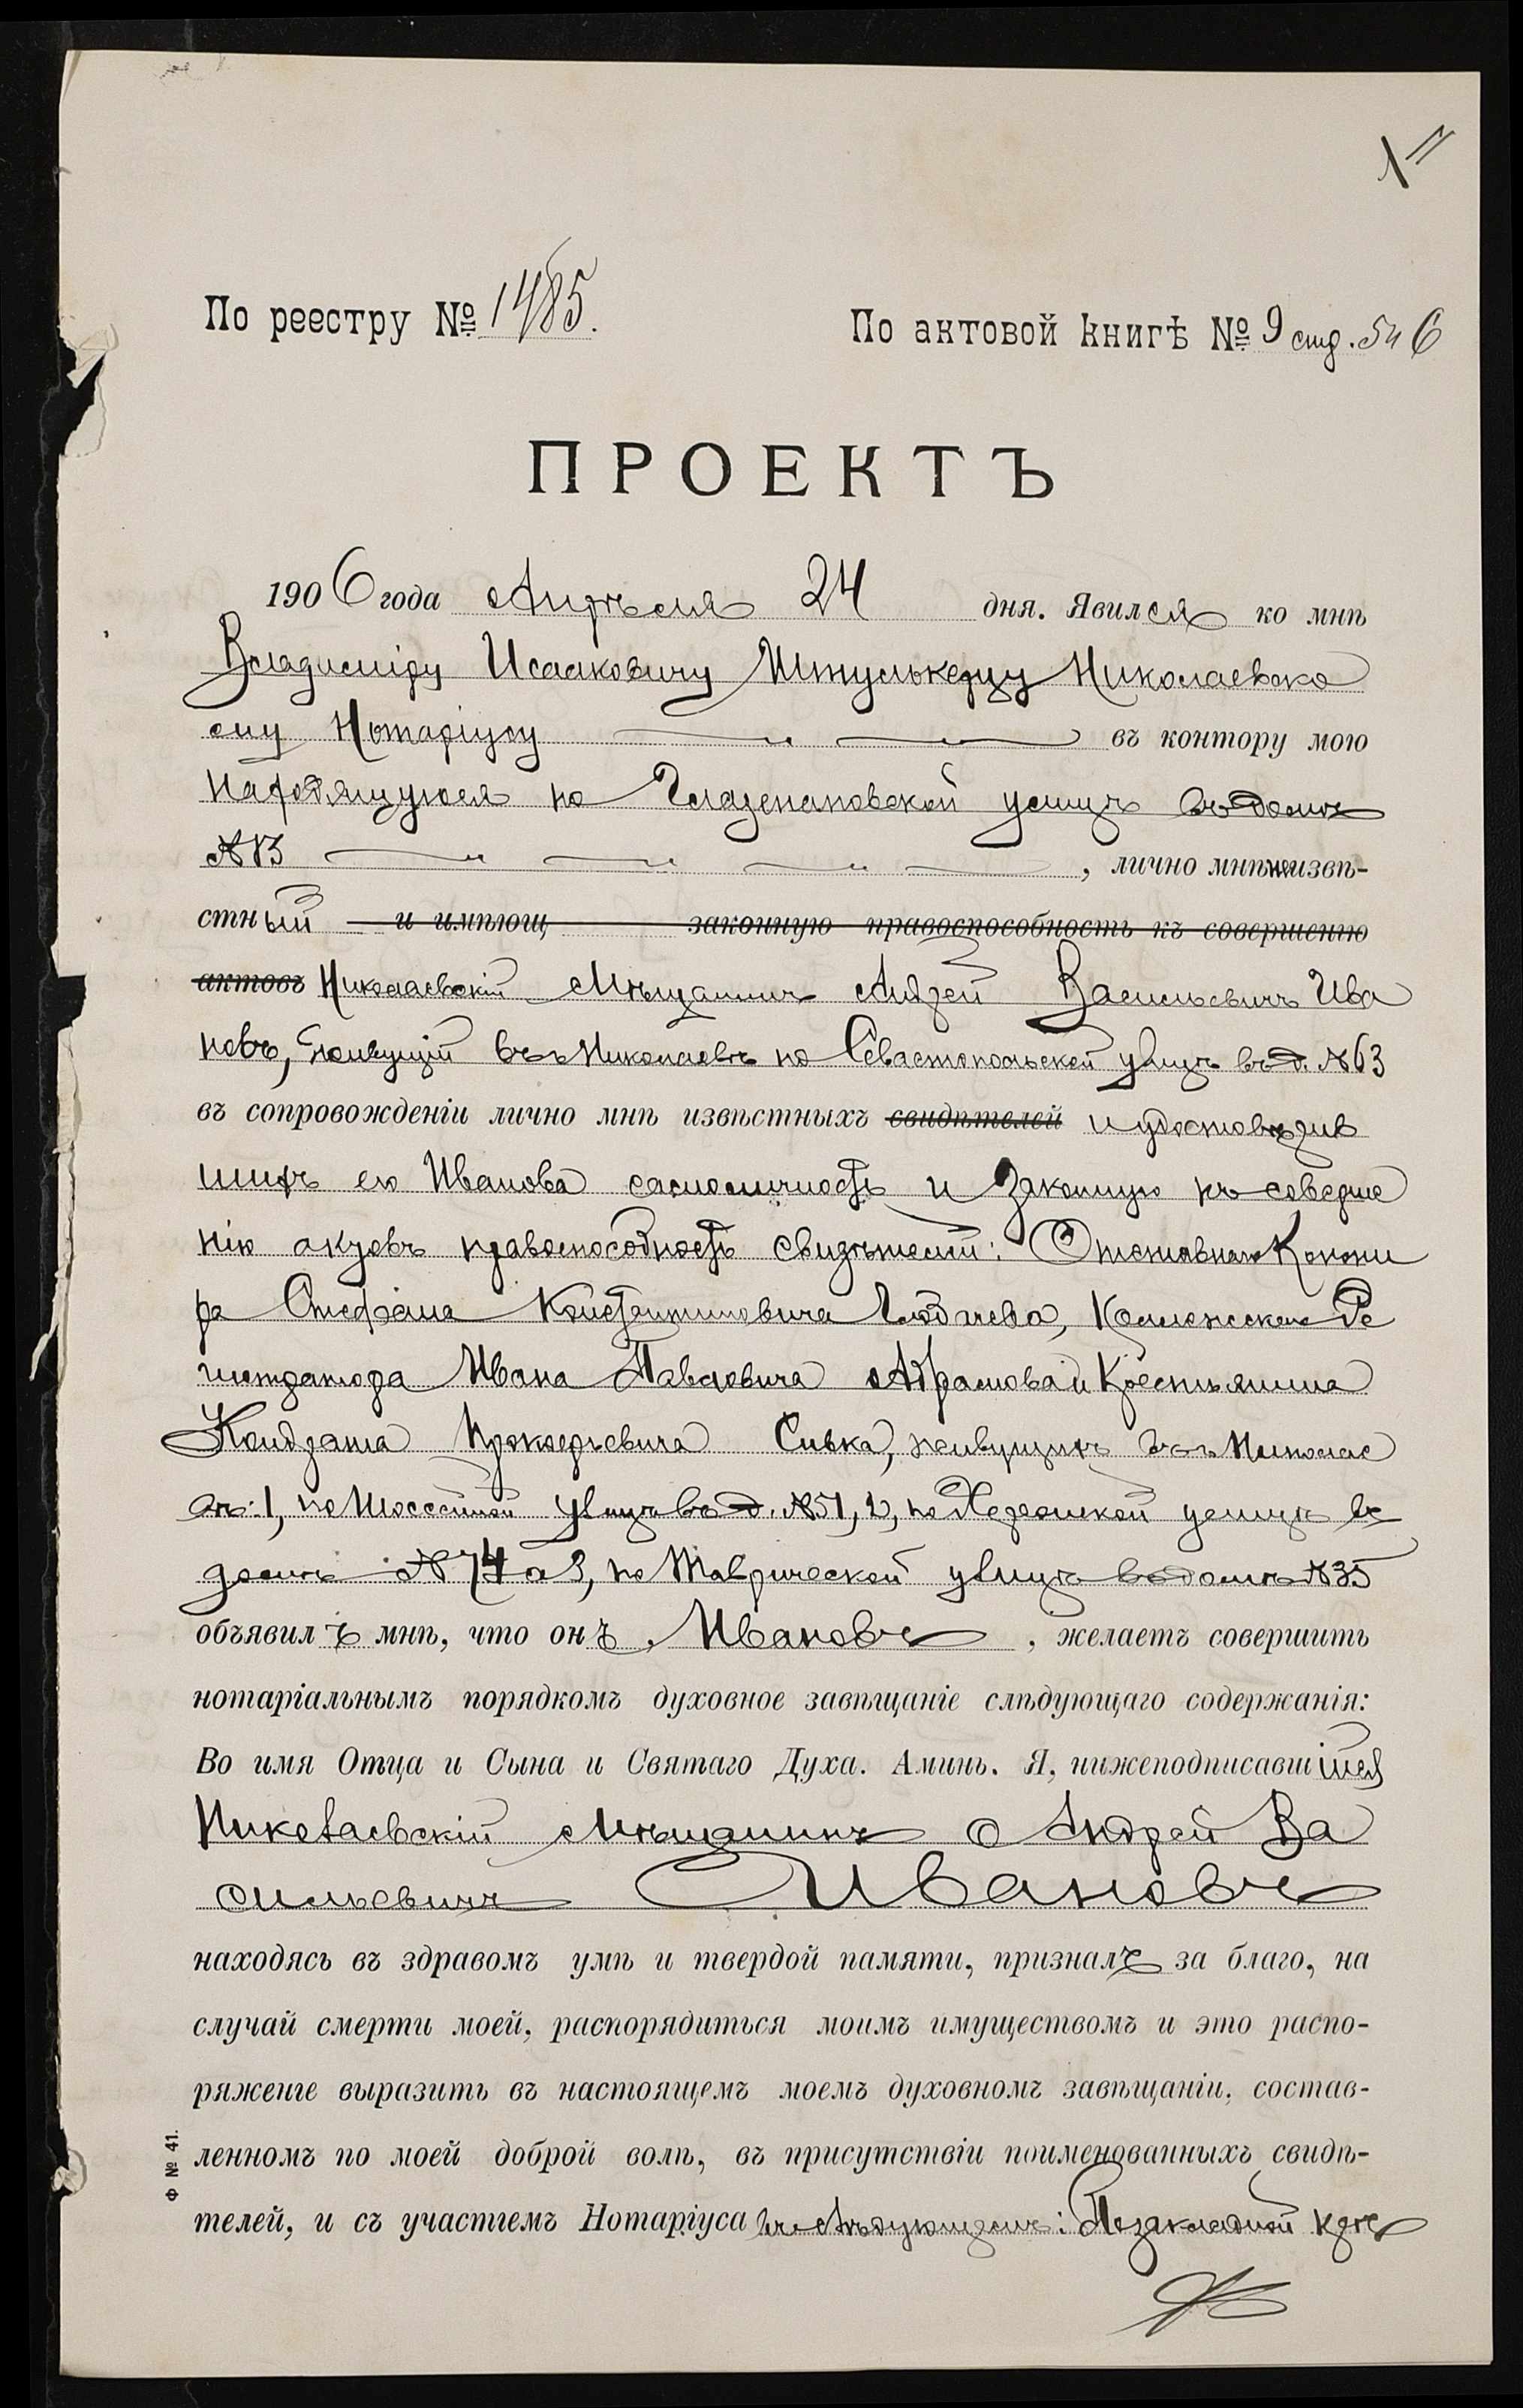 1
По реестру № 1485.
По актовой книгѣ № 9 стр. 546
ПРОЕКТЪ
1906 года Апрѣля 24 дня. Явился ко мнѣ
Владиміру Исааковичу Штулькерцу Николаевско
му Нотаріусу въ контору мою
находящуюся на Глазенаповской улицѣ въ домѣ
№ 13, лично мнѣ неизвѣ-
стный и имѣющ законную правоспособность къ совершенію
актовъ Николаевскій Мѣщанинъ Андрей Васильевичъ Ива
новъ, живущій въ Николаевѣ по Севастопольской улицѣ въ д. № 63
въ сопровожденіи лично мнѣ извѣстныхъ свидѣтелей и удостовѣрив
шихъ его Иванова самоличность и законную къ соверше
нію актовъ правоспособность свидѣтелей: Отставного Канони
ра Стефана Константиновича Гребнева, Коллежскаго Ре
гистратора Ивана Павловича Абрамова и Крестьянина
Кондрата Прокофьевича Сивка, живущихъ въ Николае
вѣ: 1, по Шоссейной улицѣ въ д. № 51, 2, по Херсонской улицѣ въ
домѣ № 74 а 3, по Таврической улицѣ въ домѣ № 35
объявилъ мнѣ, что онъ, Ивановъ, желаетъ совершить
нотаріальнымъ порядкомъ духовное завѣщаніе слѣдующаго содержанія:
Во имя Отца и Сына и Святаго Духа. Аминь. Я, нижеподписавшійся
Николаевскій Мѣщанинъ Андрей Ва
сильевичъ Ивановъ
находясь въ здравомъ умѣ и твердой памяти, призналъ за благо, на
случай смерти моей, распорядиться моимъ имуществомъ и это распо-
ряженіе выразить въ настоящемъ моемъ духовномъ завѣщаніи, состав-
ленномъ по моей доброй волѣ, въ присутствіи поименованныхъ свидѣ-
телей, и съ участіемъ Нотаріуса въ слѣдующемъ: По закладной крѣ
Ф № 41.